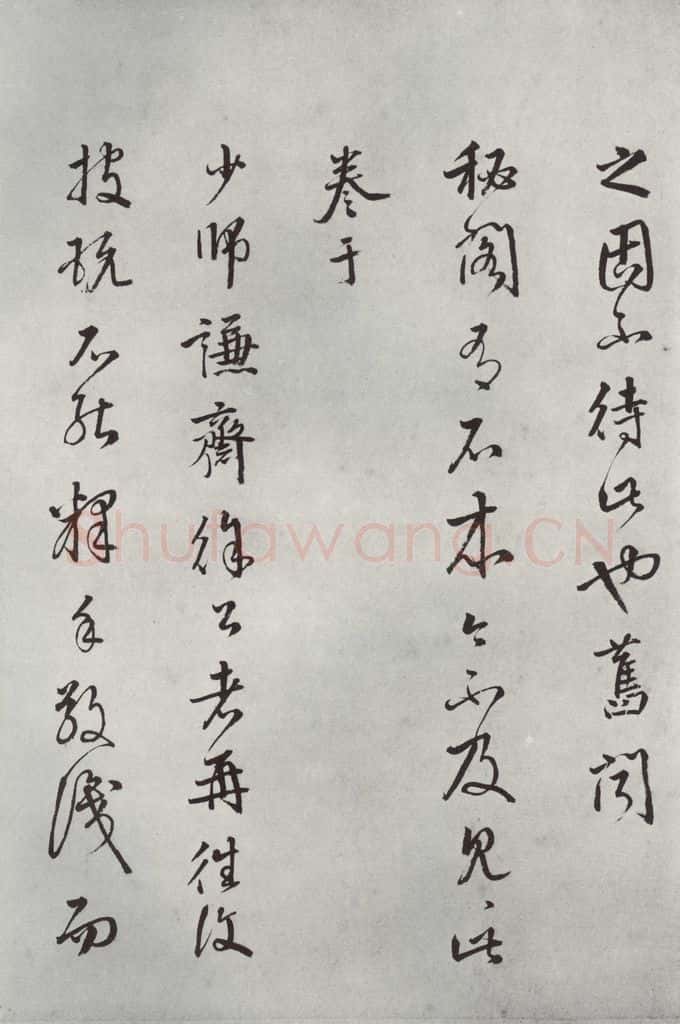 之固不待此也舊聞
秘閣有石本今不及見此
卷于
少師謙齋徐公老再往從
披玩不能釋手敬識而
Shufawang.CN